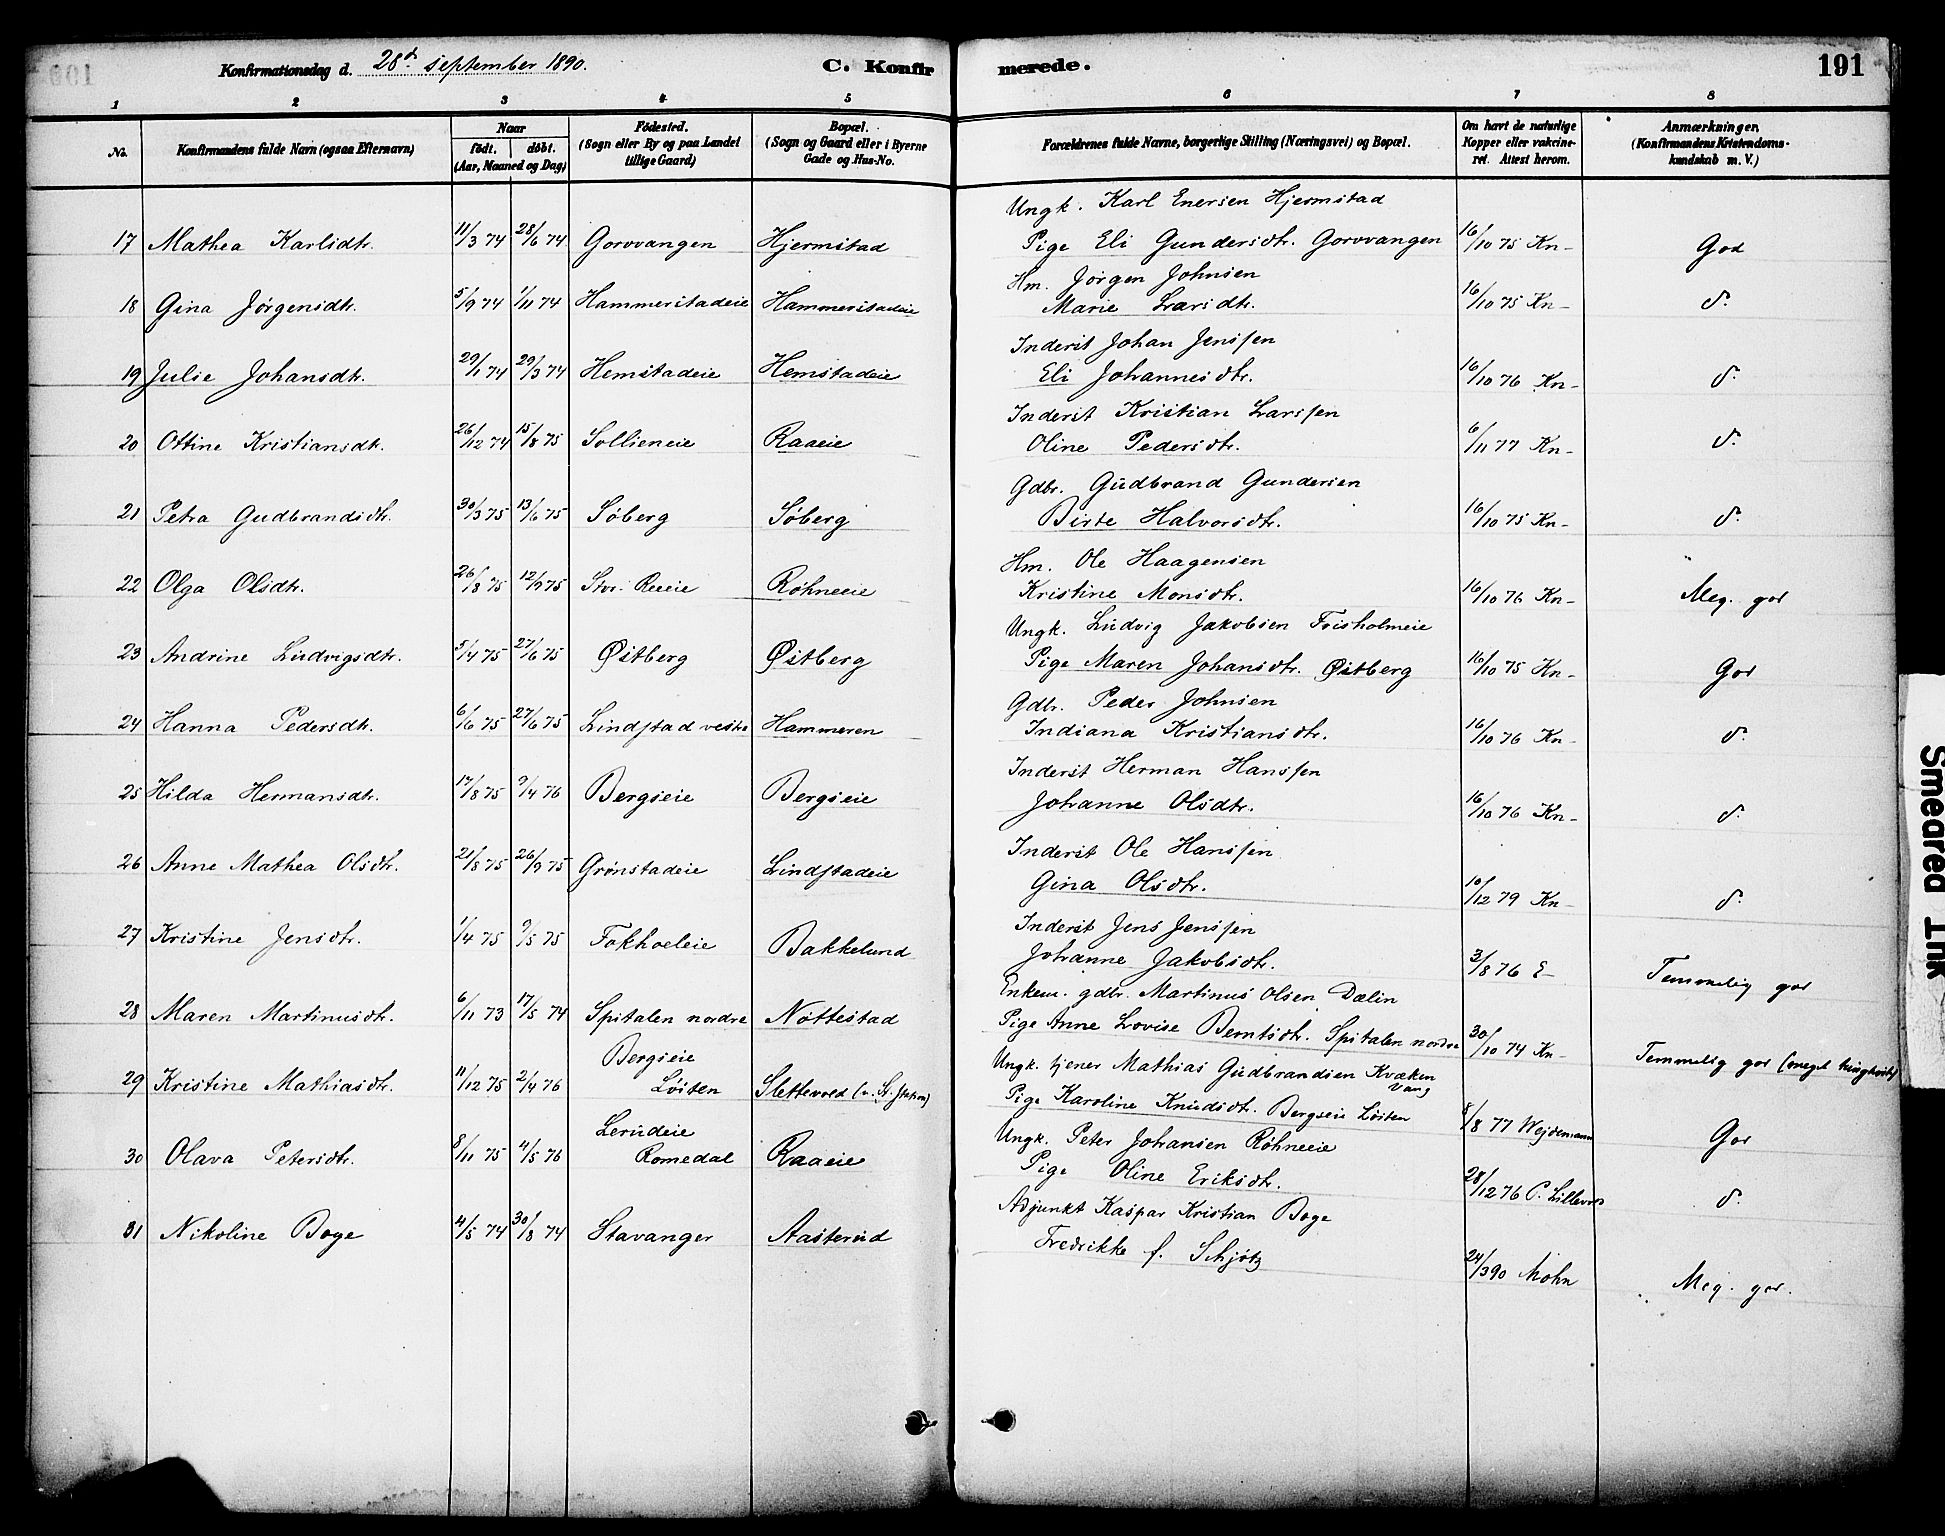 Konfirmationsdag d. 28d. september 1890.
C. Konfirmerede.
191
1 2 3 4 5 6 7 8
No. Konfirmandens fulde Navn (ogsaa Efternavn) Naar født. døbt. (Aar, Maaned og Dag) Fødested. (Sogn eller By og paa Landet tillige Gaard) Bopæl. (Sogn og Gaard eller i Byerne Gade og Hus-No. Forældrenes fulde Navne, borgerlige Stilling (Næringsvei) og Bopæl. Om havt de naturlige Kopper eller vakcineret. Attest herom. Anmærkninger. (Konfirmandens Kristendomskundskab m. V.)
Ungk. Karl Enersen Hjermstad
17 Mathea Karlsdtr. 11/3 74 28/6 74 Gorovangen Hjermstad Pige Eli Gundersdtr. Gorovangen 16/10 75 Kn- God
Hm. Jørgen Johnsen
18 Gina Jørgensdtr. 5/9 74 1/11 74 Hammerstadeie Hammerstadeie Marie Larsdtr. 16/10 75 Kn- d.
Inderst Johan Jenssen
19 Julie Johansdtr. 29/1 74 29/3 74 Hemstadeie Hemstadeie Eli Johannesdtr. 16/10 76 Kn- d.
Inderst Kristian Larssen
20 Ottine Kristiansdtr. 26/12 74 15/8 75 Sollieneie Raaeie Oline Pedersdtr. 6/11 77 Kn- d.
Gdbr. Gudbrand Gundersen
21 Petra Gudbrandsdtr. 30/3 75 13/6 75 Søberg Søberg Birte Halvorsdtr. 16/10 75 Kn- d.
Hm. Ole Haagensen
22 Olga Olsdtr. 26/8 75 12/9 75 Stor. Reeie Røhneeie Kristine Monsdtr. 16/10 76 Kn- Meg. god
Ungk. Ludvig Jakobsen Frisholmeie
23 Andrine Ludvigsdtr. 5/4 75 27/6 75 Østberg Østberg Pige Maren Johansdtr. Østberg 16/10 75 Kn- God
Gdbr. Peder Johnsen
24 Hanna Pedersdtr. 6/6 75 27/6 75 Lindstad vestre Hammeren Indiana Kristiansdtr. 16/10 76 Kn- d.
Inderst Herman Hanssen
25 Hilda Hermansdtr. 17/8 75 9/4 76 Bergseie Bergseie Johanne Olsdtr. 16/10 76 Kn- d.
Inderst Ole Hanssen
26 Anne Mathea Olsdtr. 21/8 75 26/9 75 Grønstadeie Lindstadeie Gina Olsdtr. 10/12 79 Kn- d.
Inderst Jens Jenssen
27 Kristine Jensdtr. 1/4 75 9/5 75 Fokhoeleie Bakkelund Johanne Jakobsdtr. 3/8 76 E- Temmelig god
Enkem. gdbr. Martinus Olsen Dælin
28 Maren Martinusdtr. 6/11 73 17/5 74 Spitalen nordre Nøttestad Pige Anne Lovise Berntsdtr. Spitalen nordre 30/10 74 Kn- Temmelig god (meget tunghørt)
Bergseie Ungk. tjener Mathias Gudbrandsen Kvæken Vang
29 Kristine Mathiasdtr. 11/12 75 2/4 76 Løiten Slettevold (v. St. station) Pige Karoline Knudsdtr. Bergseie Løiten 8/8 77 Wejdemann God
Lerudeie Ungk. Peter Johansen Røhneeie
30 Olava Petersdtr. 8/11 75 4/5 76 Romedal Raaeie Pige Oline Eriksdtr. 28/12 76 C. Lillevold d.
Adjunkt Kaspar Kristian Boge
31 Nikoline Boge 4/5 74 30/8 74 Stavanger Aasterud Fredrikke f. Schjøtz 24/3 90 Mohn Meg. god.
Smeared Ink